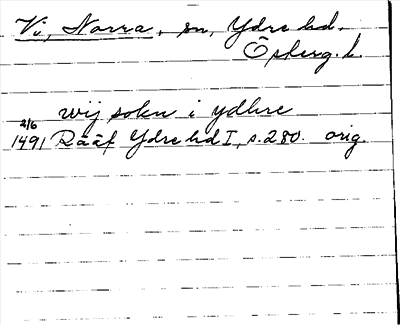 Vi, Norra, sn, Ydre hd.
Österg. l.
wij sokn i ydhre
2/6
1491 Rääf Ydre hd I, s. 280. orig.